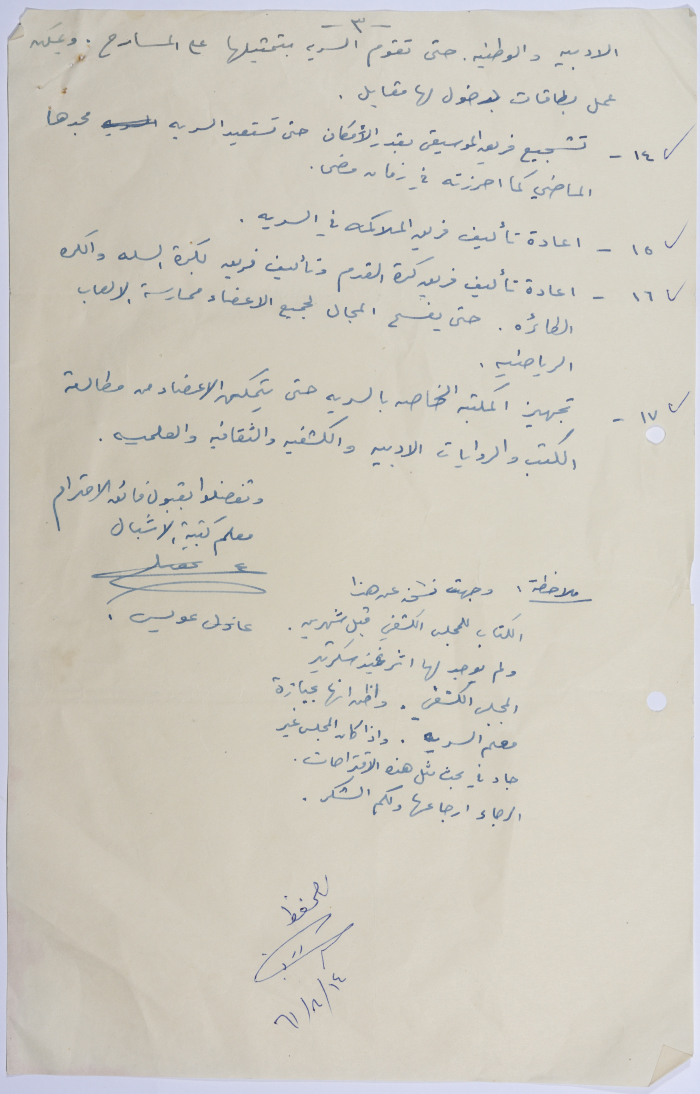 - ٣ -
الادبيه والوطنيه. حتى تقوم السريه بتمثيلها على المسارح. ويمكن
عمل بطاقات لدخول لها مقابل.
١٤ - تشجيع فريق الموسيقى بقدر الأمكان حتى تستعيد السريه مجدها
الماضي كما احرزته في زمان مضى.
١٥ - اعادة تأليف فريق الملاكمه في السريه.
١٦ - اعادة تأليف فريق كرة القدم وتأليف فريق لكرة السله والكره
الطائره. حتى يفسح المجال لجميع الاعضاء ممارسة الالعاب
الرياضيه.
١٧ - تجهيز المكتبه الخاصه بالسريه حتى يتمكن الاعضاء من مطالعة
الكتب والروايات الادبيه والكشفيه والثقافيه والعلميه.
وتفضلوا بقبول فائق الاحترام
معلم كتيبة الاشبال
عادل عويس.
ملاحظة: وجهت نسخة عن هذا
الكتاب للمجلس الكشفي قبل شهرين.
ولم يوجد لها اثر عند سكرتير
المجلس الكشفي. واظن انها بحيازة
معلم السريه. واذا كان المجلس غير
جاد في بحث مثل هذه الاقتراحات.
الرجاء ارجاعها ولكم الشكر.
للحفظ
٦١/٨/١٤